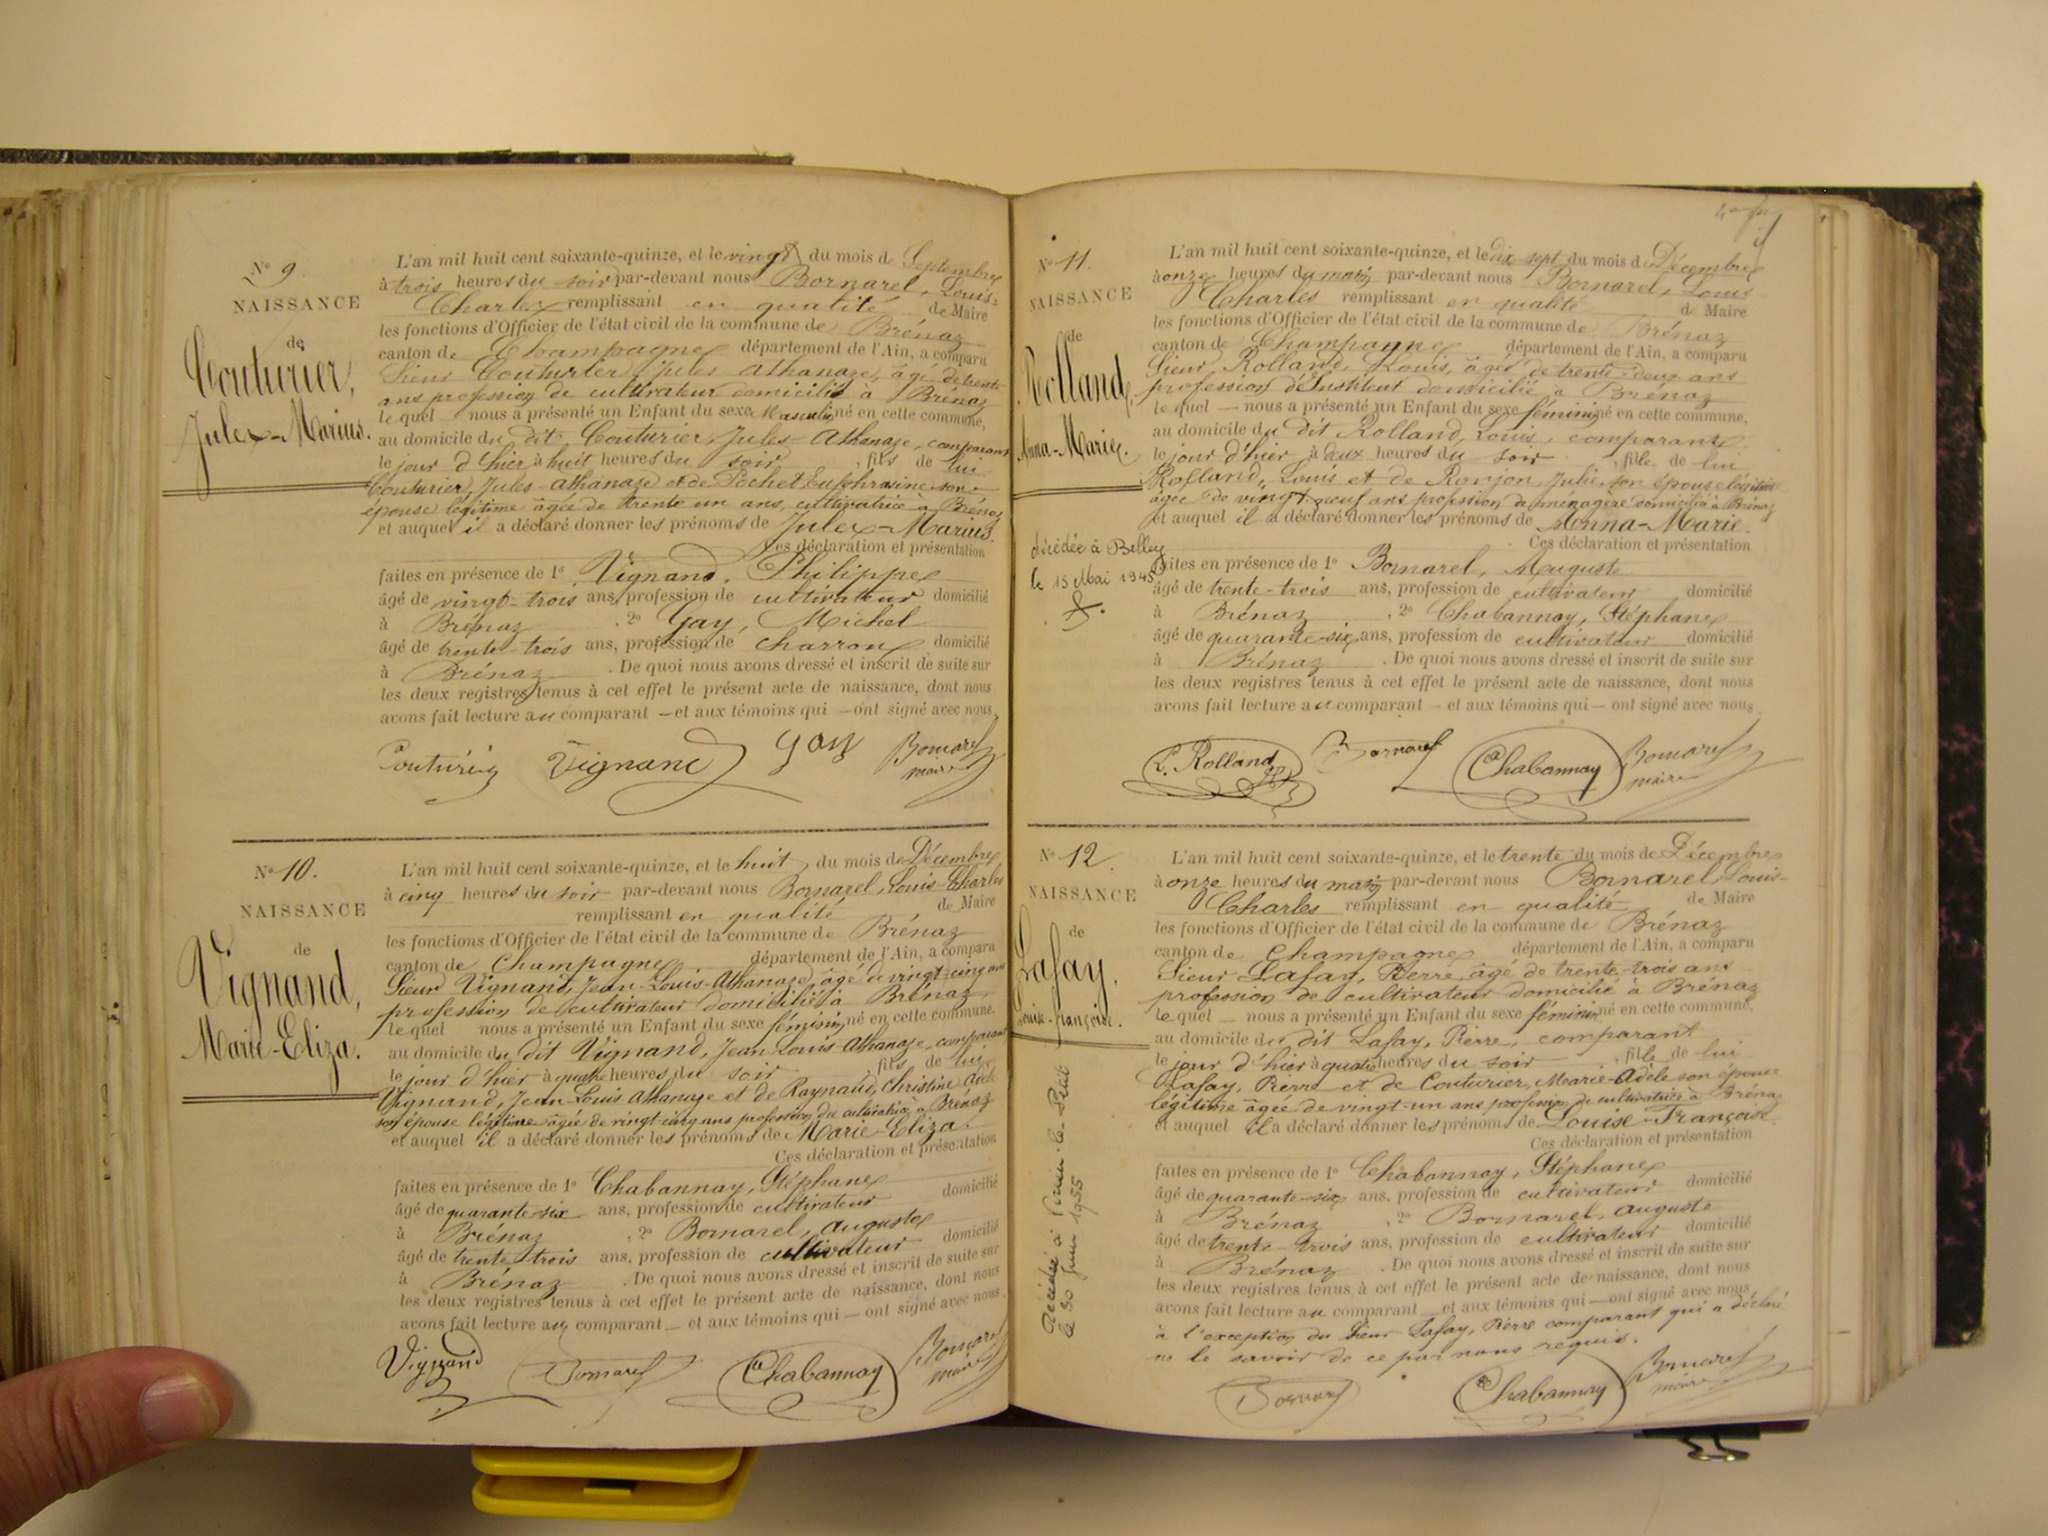 N° 9.
NAISSANCE
de
Couturier,
Jules-Marius.
L'an mil huit cent soixante-quinze, et le vingt du mois de Septembre
à trois heures du soir par-devant nous Bornarel, Louis-
Charles remplissant en qualité de Maire
les fonctions d'Officier de l'état civil de la commune de Brénaz
canton de Champagne département de l'Ain, a comparu
Sieur Couturier, Jules Athanaze, âgé de trente
ans profession de cultivateur domicilié à Brénaz
le quel — nous a présenté un Enfant du sexe Masculin né en cette commune,
au domicile du dit Couturier, Jules-Athanaze, comparant
le jour d'hier à huit heures du soir, fils de lui
Couturier, Jules-Athanaze et de Pochet Euphrasine son
épouse légitime âgée de trente un ans, cultivatrice à Brénaz
et auquel il a déclaré donner les prénoms de Jules-Marius.
Ces déclaration et présentation
faites en présence de 1° Vignand, Philippe
âgé de vingt-trois ans, profession de cultivateur domicilié
à Brénaz, 2° Gay, Michel
âgé de trente-trois ans, profession de charron domicilié
à Brénaz. De quoi nous avons dressé et inscrit de suite sur
les deux registres tenus à cet effet le présent acte de naissance, dont nous
avons fait lecture au comparant — et aux témoins qui — ont signé avec nous.
Vignand Gay Bornarel
maire
N° 10.
NAISSANCE
de
Vignand,
Marie-Eliza.
L'an mil huit cent soixante-quinze, et le huit du mois de Décembre
à cinq heures du soir par-devant nous Bornarel, Louis-Charles
remplissant en qualité de Maire
les fonctions d'Officier de l'état civil de la commune de Brénaz
canton de Champagne département de l'Ain, a comparu
Sieur Vignand, Jean-Louis-Athanaze, âgé de vingt-cinq ans
profession de cultivateur domicilié à Brénaz
le quel nous a présenté un Enfant du sexe féminin né en cette commune,
au domicile du dit Vignand, Jean Louis-Athanaze, comparant
le jour d'hier à quatre heures du soir, fils de lui
Vignand, Jean-Louis Athanaze et de Raynaud, Christine Adèle
son épouse légitime âgée de vingt-cinq ans profession de cultivatrice à Brénaz
et auquel il a déclaré donner les prénoms de Marie-Eliza.
Ces déclaration et présentation
faites en présence de 1° Chabannay, Stéphane
âgé de quarante-six ans, profession de cultivateur domicilié
à Brénaz, 2° Bornarel, Auguste
âgé de trente-trois ans, profession de cultivateur domicilié
à Brénaz. De quoi nous avons dressé et inscrit de suite sur
les deux registres tenus à cet effet le présent acte de naissance, dont nous
avons fait lecture au comparant — et aux témoins qui — ont signé avec nous.
Vignand Bornarel Chabannay Bornarel
maire
N° 11.
NAISSANCE
de
Rolland,
Anna-Marie.
décédée à Belley
le 15 Mai 1945
L'an mil huit cent soixante-quinze, et le dix sept du mois de Décembre
à onze heures du matin par-devant nous Bornarel, Louis
Charles remplissant en qualité de Maire
les fonctions d'Officier de l'état civil de la commune de Brénaz
canton de Champagne département de l'Ain, a comparu
Sieur Rolland, Louis, âgé de trente-deux ans
profession d'Institut domicilié à Brénaz
le quel — nous a présenté un Enfant du sexe féminin né en cette commune,
au domicile du dit Rolland, Louis, comparant
le jour d'hier à deux heures du soir, fille de lui
Rolland, Louis et de Ronjon, Julie, son épouse légitime
âgée de vingt neuf ans profession de ménagère domicilié à Brénaz
et auquel il a déclaré donner les prénoms de Anna-Marie.
Ces déclaration et présentation
faites en présence de 1° Bornarel, Auguste
âgé de trente-trois ans, profession de cultivateur domicilié
à Brénaz, 2° Chabannay, Stéphane
âgé de quarante-six ans, profession de cultivateur domicilié
à Brénaz. De quoi nous avons dressé et inscrit de suite sur
les deux registres tenus à cet effet le présent acte de naissance, dont nous
avons fait lecture au comparant — et aux témoins qui — ont signé avec nous.
L. Rolland Bornarel Chabannay Bornarel
maire
N° 12.
NAISSANCE
de
Lafay,
Louise-françoise.
Décédée à
le 30 Juin 1955
L'an mil huit cent soixante-quinze, et le trente du mois de Décembre
à onze heures du matin par-devant nous Bornarel, Louis-
Charles remplissant en qualité de Maire
les fonctions d'Officier de l'état civil de la commune de Brénaz
canton de Champagne département de l'Ain, a comparu
Sieur Lafay, Pierre, âgé de trente-trois ans
profession de cultivateur domicilié à Brénaz
le quel — nous a présenté un Enfant du sexe féminin né en cette commune,
au domicile du dit Lafay, Pierre, comparant
le jour d'hier à quatre heures du soir, fille de lui
Lafay, Pierre et de Couturier, Marie-Adèle son épouse
légitime âgée de vingt-un ans profession de cultivatrice à Brénaz
et auquel il a déclaré donner les prénoms de Louise-Françoise.
Ces déclaration et présentation
faites en présence de 1° Chabannay, Stéphane
âgé de quarante-six ans, profession de cultivateur domicilié
à Brénaz, 2° Bornarel, Auguste
âgé de trente-trois ans, profession de cultivateur domicilié
à Brénaz. De quoi nous avons dressé et inscrit de suite sur
les deux registres tenus à cet effet le présent acte de naissance, dont nous
avons fait lecture au comparant — et aux témoins qui — ont signé avec nous
à l'exception du Sieur Lafay, Pierre comparant qui a déclaré
ne le savoir de ce par nous requis.
Bornarel Chabannay Bornarel
maire